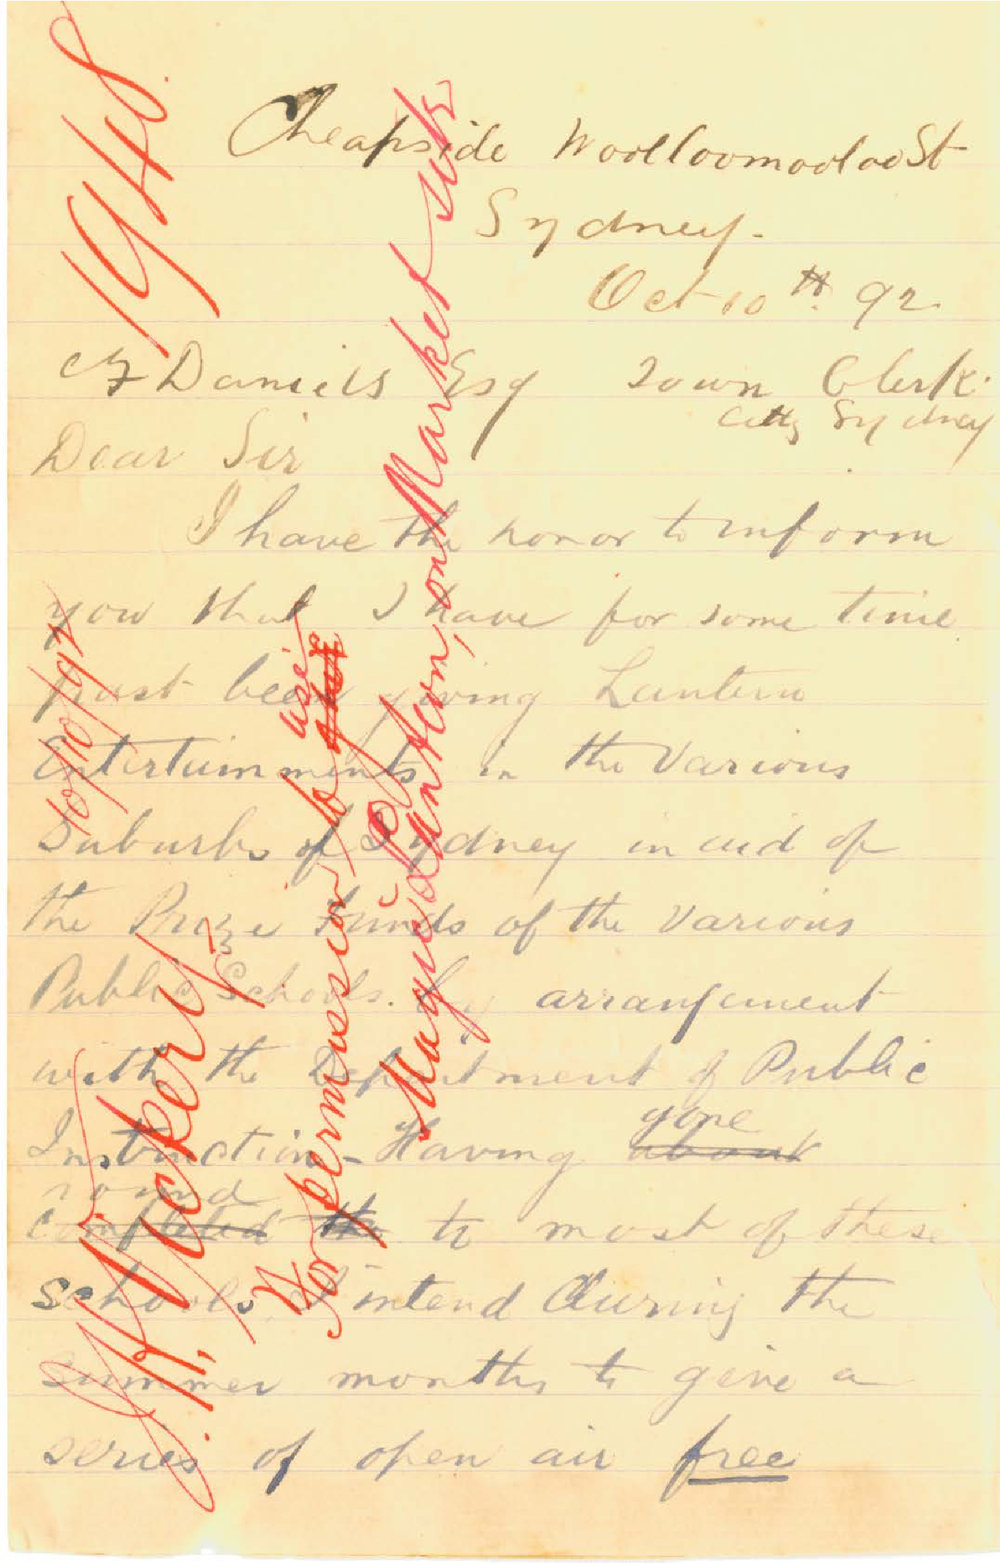 Cheapside Woolloomooloo St
Sydney.
Oct 10th. 92.
Daniels Esq Town Clerk.
City Sydney
Dear Sir
I have the honor to inform
you that I have for some time
past been giving Lantern
Entertainments in the Various
Suburbs of Sydney in aid of
the Prize Funds of the Various
Public Schools. by arrangement
with the Department of Public
Instruction - Having gone
round
completed the to most of these
schools, I intend during the
summer months to give a
series of open air free
1948.
10/10/92
J.W. Vickery,
For permission to use
Magic Lantern, on Market site